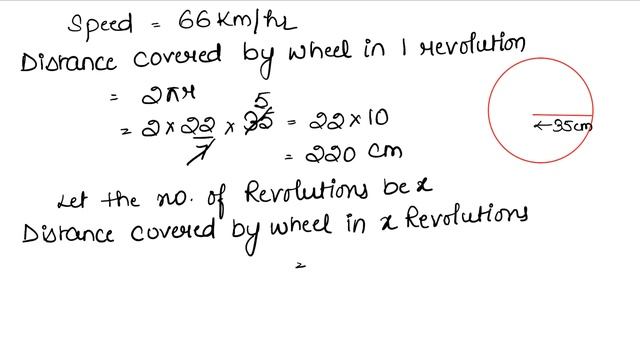 Speed = 66 Km/hr
Distance covered by wheel in 1 revolution
= 2πr
= 2 × 22/7 × 35 5 = 22 × 10
= 220 cm
←35cm
Let the no. of Revolutions be x
Distance covered by wheel in x Revolutions
=